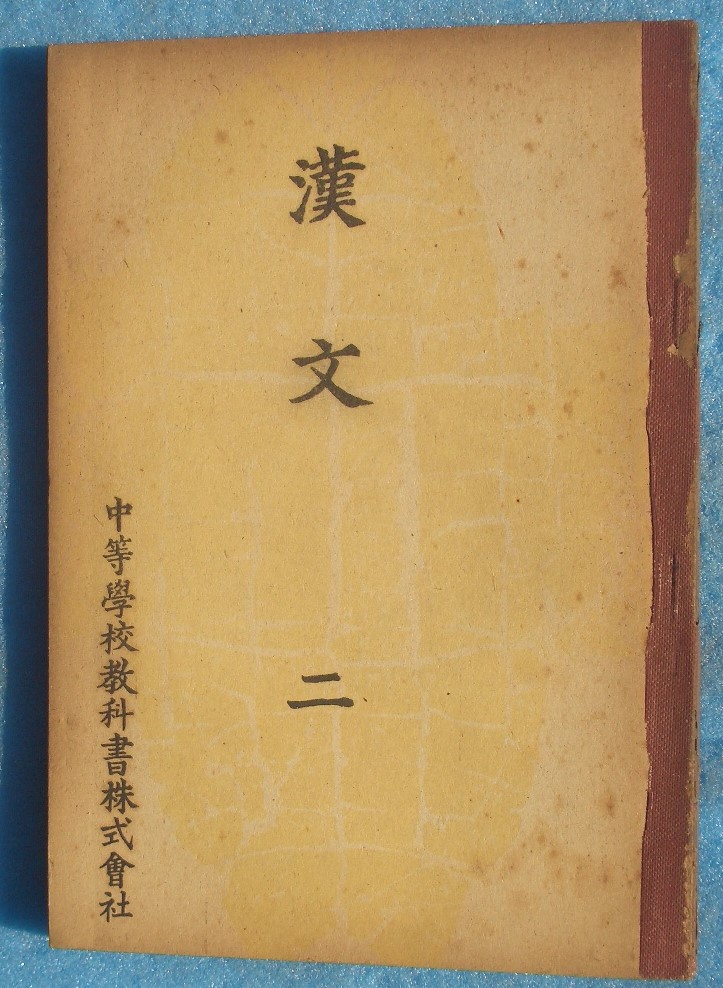 漢文 二
中等學校教科書株式會社